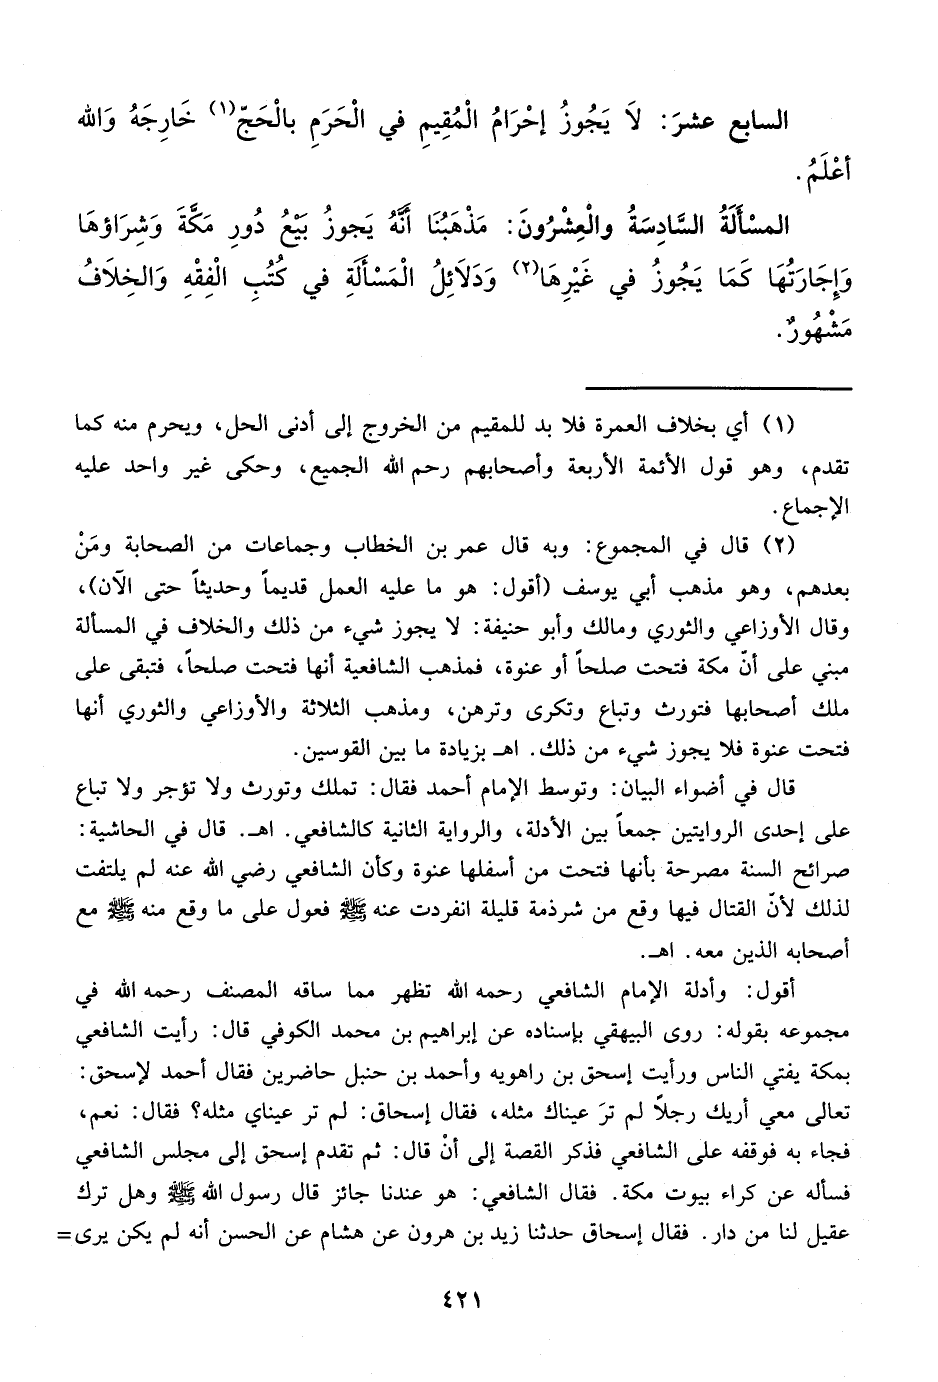 السابع عشرَ: لاَ يَجُوزُ إحْرَامُ الْمُقِيمِ في الْحَرَمِ بالْحَجّ(١) خَارِجَهُ وَالله
أعْلَمُ.
المسْأَلَةُ السَّادِسَةُ والْعِشْرُونَ: مَذْهَبُنَا أَنَّهُ يَجوزُ بَيْعُ دُورِ مَكَّةَ وَشِرَاؤهَا
وَإِجَارَتُهَا كَمَا يَجُوزُ في غَيْرِهَا(٢) وَدَلاَئِلُ الْمَسْأَلَةِ في كُتُبِ الْفِقْهِ وَالخِلاَفُ
مَشْهُورٌ.
(١) أي بخلاف العمرة فلا بد للمقيم من الخروج إلى أدنى الحل، ويحرم منه كما
تقدم، وهو قول الأئمة الأربعة وأصحابهم رحم الله الجميع، وحكى غير واحد عليه
الإجماع.
(٢) قال في المجموع: وبه قال عمر بن الخطاب وجماعات من الصحابة ومَنْ
بعدهم، وهو مذهب أبي يوسف (أقول: هو ما عليه العمل قديماً وحديثاً حتى الآن)،
وقال الأوزاعي والثوري ومالك وأبو حنيفة: لا يجوز شيء من ذلك والخلاف في المسألة
مبني على أنّ مكة فتحت صلحاً أو عنوة، فمذهب الشافعية أنها فتحت صلحاً، فتبقى على
ملك أصحابها فتورث وتباع وتكرى وترهن، ومذهب الثلاثة والأوزاعي والثوري أنها
فتحت عنوة فلا يجوز شيء من ذلك. اهـ بزيادة ما بين القوسين.
قال في أضواء البيان: وتوسط الإمام أحمد فقال: تملك وتورث ولا تؤجر ولا تباع
على إحدى الروايتين جمعاً بين الأدلة، والرواية الثانية كالشافعي. اهـ. قال في الحاشية:
صرائح السنة مصرحة بأنها فتحت من أسفلها عنوة وكأن الشافعي رضي الله عنه لم يلتفت
لذلك لأنّ القتال فيها وقع من شرذمة قليلة انفردت عنه ﷺ فعول على ما وقع منه ﷺ مع
أصحابه الذين معه. اهـ.
أقول: وأدلة الإمام الشافعي رحمه الله تظهر مما ساقه المصنف رحمه الله في
مجموعه بقوله: روى البيهقي بإسناده عن إبراهيم بن محمد الكوفي قال: رأيت الشافعي
بمكة يفتي الناس ورأيت إسحق بن راهويه وأحمد بن حنبل حاضرين فقال أحمد لإسحق:
تعالى معي أريك رجلاً لم ترَ عيناك مثله، فقال إسحاق: لم تر عيناي مثله؟ فقال: نعم،
فجاء به فوقفه على الشافعي فذكر القصة إلى أنْ قال: ثم تقدم إسحق إلى مجلس الشافعي
فسأله عن كراء بيوت مكة. فقال الشافعي: هو عندنا جائز قال رسول الله ﷺ وهل ترك
عقيل لنا من دار. فقال إسحاق حدثنا زيد بن هرون عن هشام عن الحسن أنه لم يكن يرى=
٤٢١